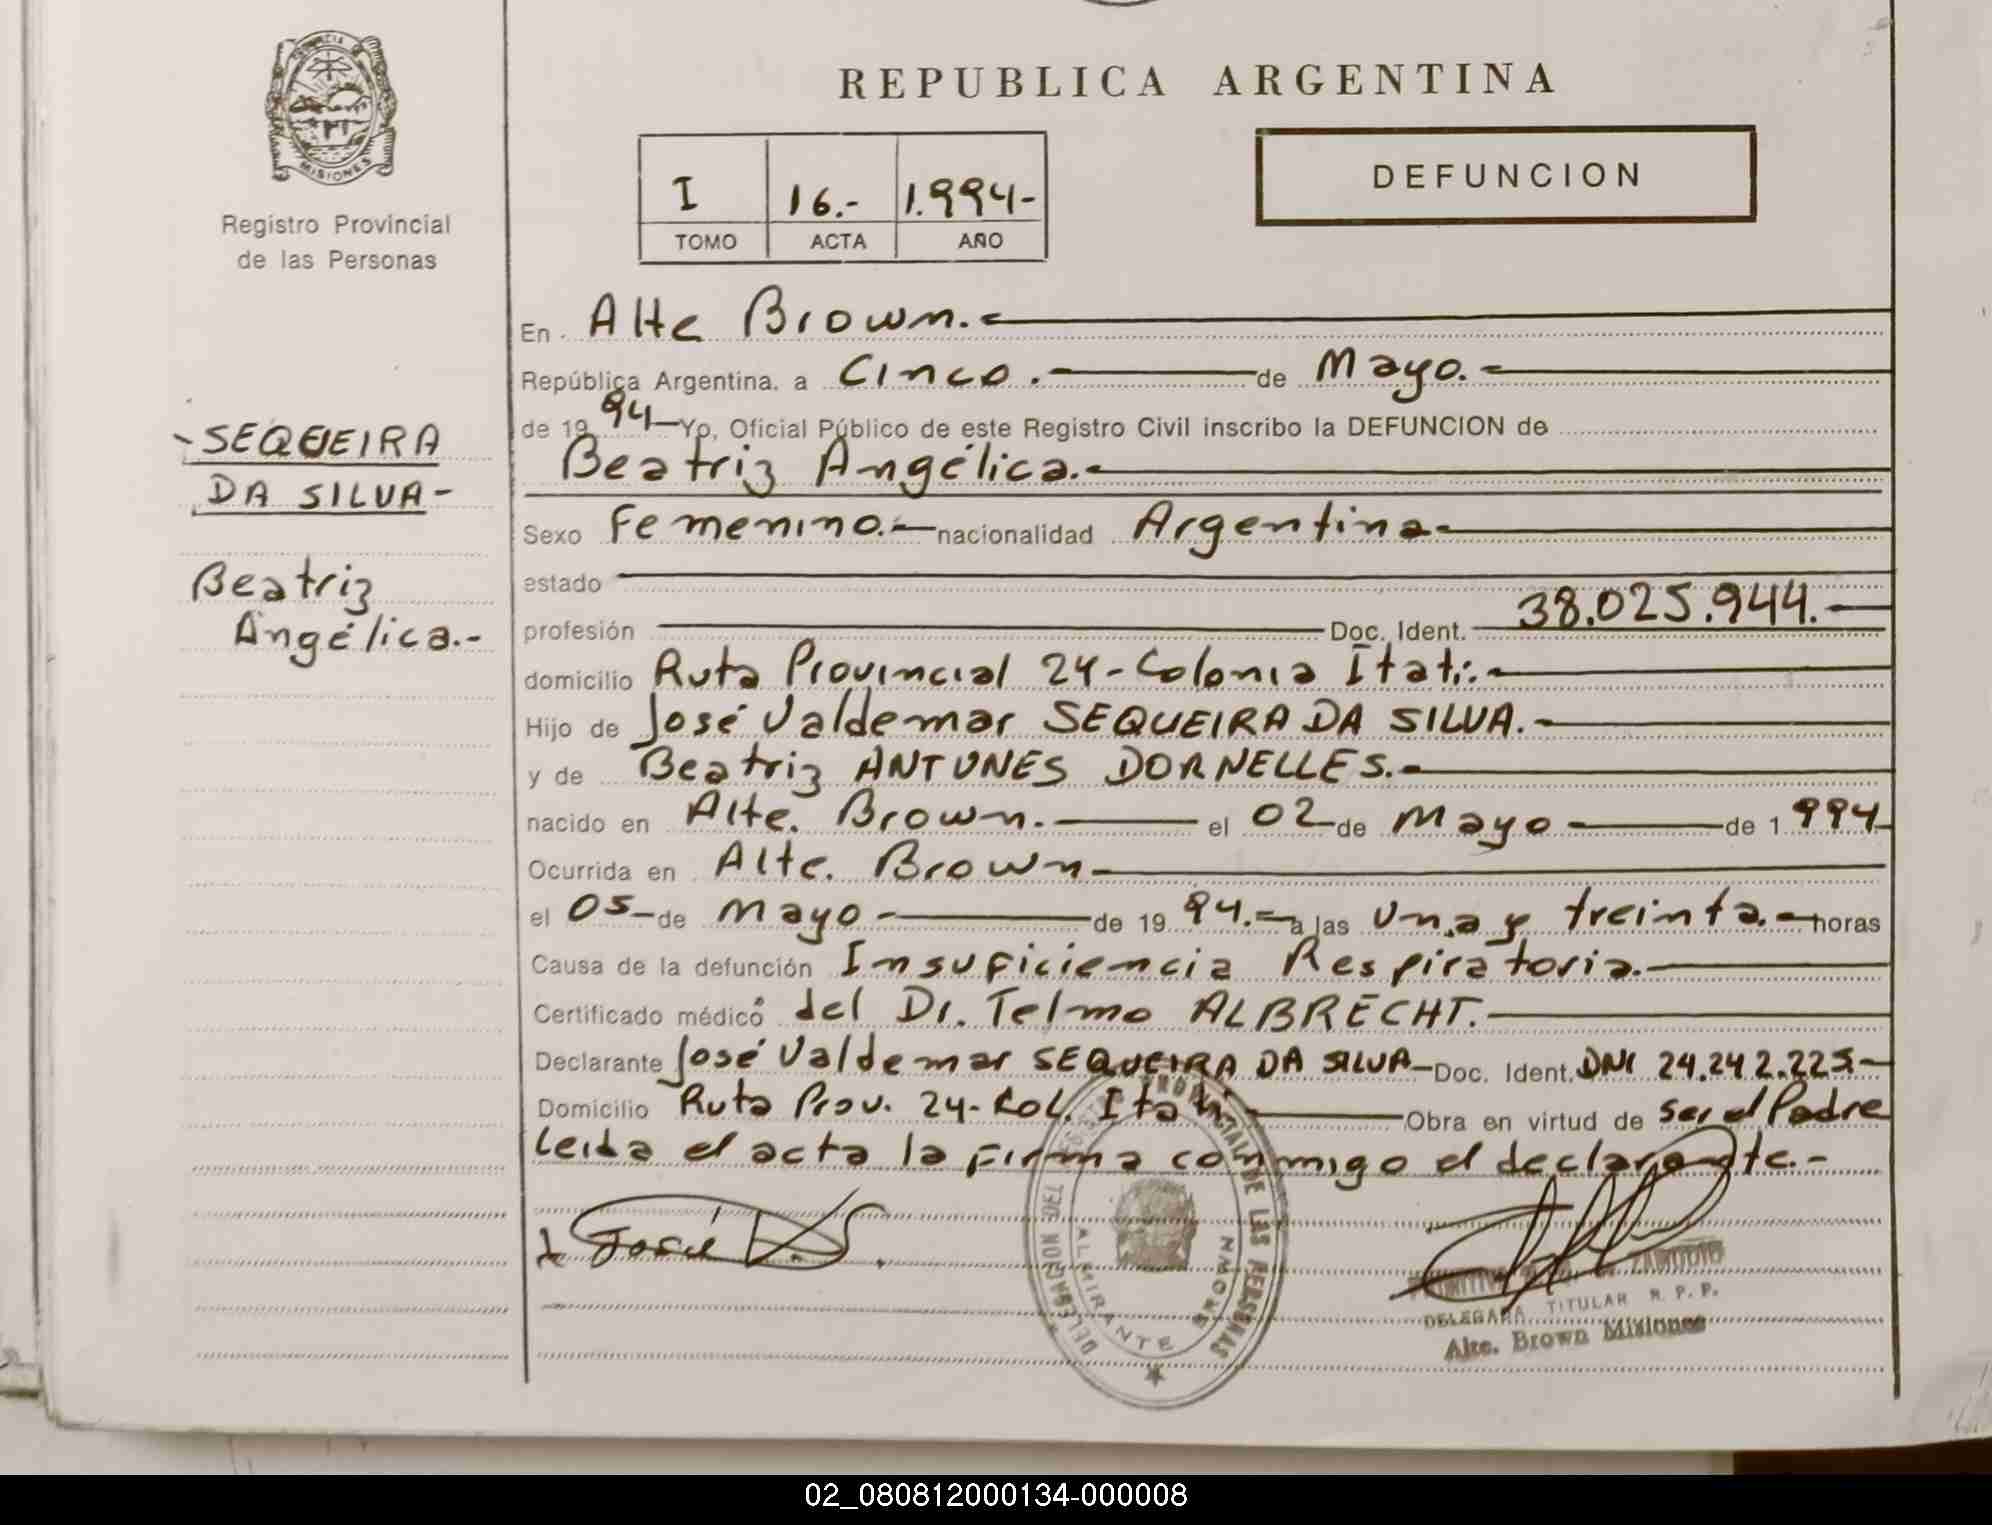 PROVINCIA DE
MISIONES
Registro Provincial
de las Personas
- SEQUEIRA
DA SILVA -
Beatriz
Angélica.-
REPUBLICA ARGENTINA
I 16.- 1.994-
TOMO ACTA AÑO
DEFUNCION
En Alte Brown.-
República Argentina. a Cinco.- de Mayo.-
de 1994- Yo, Oficial Público de este Registro Civil inscribo la DEFUNCION de
Beatriz Angélica.-
Sexo Femenino.- nacionalidad Argentina-
estado
profesión Doc. Ident. 38.025.944.-
domicilio Ruta Provincial 24-Colonia Itatí.-
Hijo de José Valdemar SEQUEIRA DA SILVA.-
y de Beatriz ANTUNES DORNELLES.-
nacido en Alte. Brown.- el 02 de Mayo- de 1994-
Ocurrida en Alte. Brown-
el 05- de Mayo- de 1994.- a las una y treinta.- horas
Causa de la defunción Insuficiencia Respiratoria.-
Certificado médico del Dr. Telmo ALBRECHT.-
Declarante José Valdemar SEQUEIRA DA SILVA- Doc. Ident. DNI 24.242.225-
Domicilio Ruta Prov. 24-Col. Itatí- Obra en virtud de ser el Padre
Leida el acta la firma conmigo el declarante.-
José
DELEGACION DEL REGISTRO PROVINCIAL DE LAS PERSONAS
ALMIRANTE BROWN
ZAMUDIO
DELEGADA TITULAR R. P. P.
Alte. Brown Misiones
02_080812000134-000008